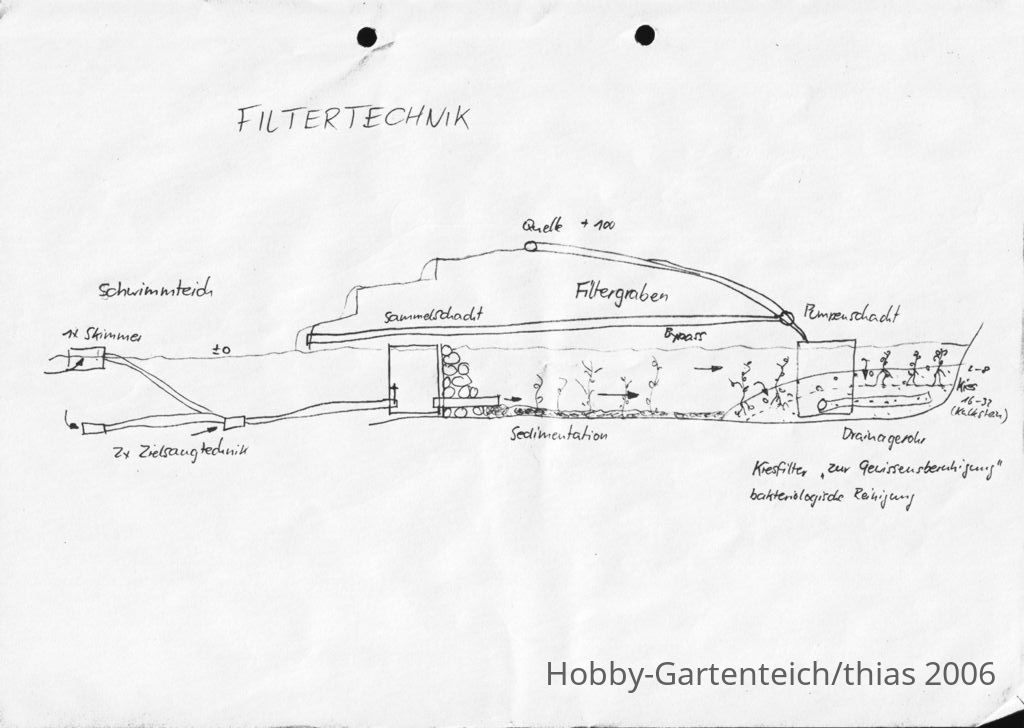 FILTERTECHNIK
Quelle + 100
Schwimmteich
Filtergraben
Sammelschacht
Pumpenschacht
1x Skimmer
±0
Bypass
2-8
Kies
16-32
(Kalkstein)
2x Zielsaugtechnik
Sedimentation
Drainagerohr
Kiesfilter „zur Gewissensberuhigung"
bakteriologische Reinigung
Hobby-Gartenteich/thias 2006